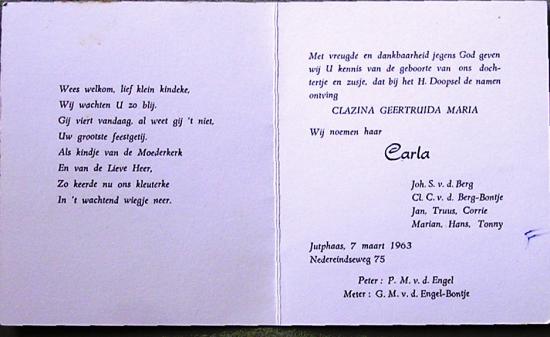 Wees welkom, lief klein kindeke,
Wij wachten U zo blij.
Gij viert vandaag, al weet gij 't niet,
Uw grootste feestgetij.
Als kindje van de Moederkerk
En van de Lieve Heer,
Zo keerde nu ons kleuterke
In 't wachtend wiegje neer.
Met vreugde en dankbaarheid jegens God geven
wij U kennis van de geboorte van ons doch-
tertje en zusje, dat bij het H. Doopsel de namen
ontving
CLAZINA GEERTRUIDA MARIA
Wij noemen haar
Carla
Joh. S. v. d. Berg
Cl. C. v. d. Berg-Bontje
Jan, Truus, Corrie
Marian, Hans, Tonny
Jutphaas, 7 maart 1963
Nedereindseweg 75
Peter: P. M. v. d. Engel
Meter: G. M. v. d. Engel-Bontje